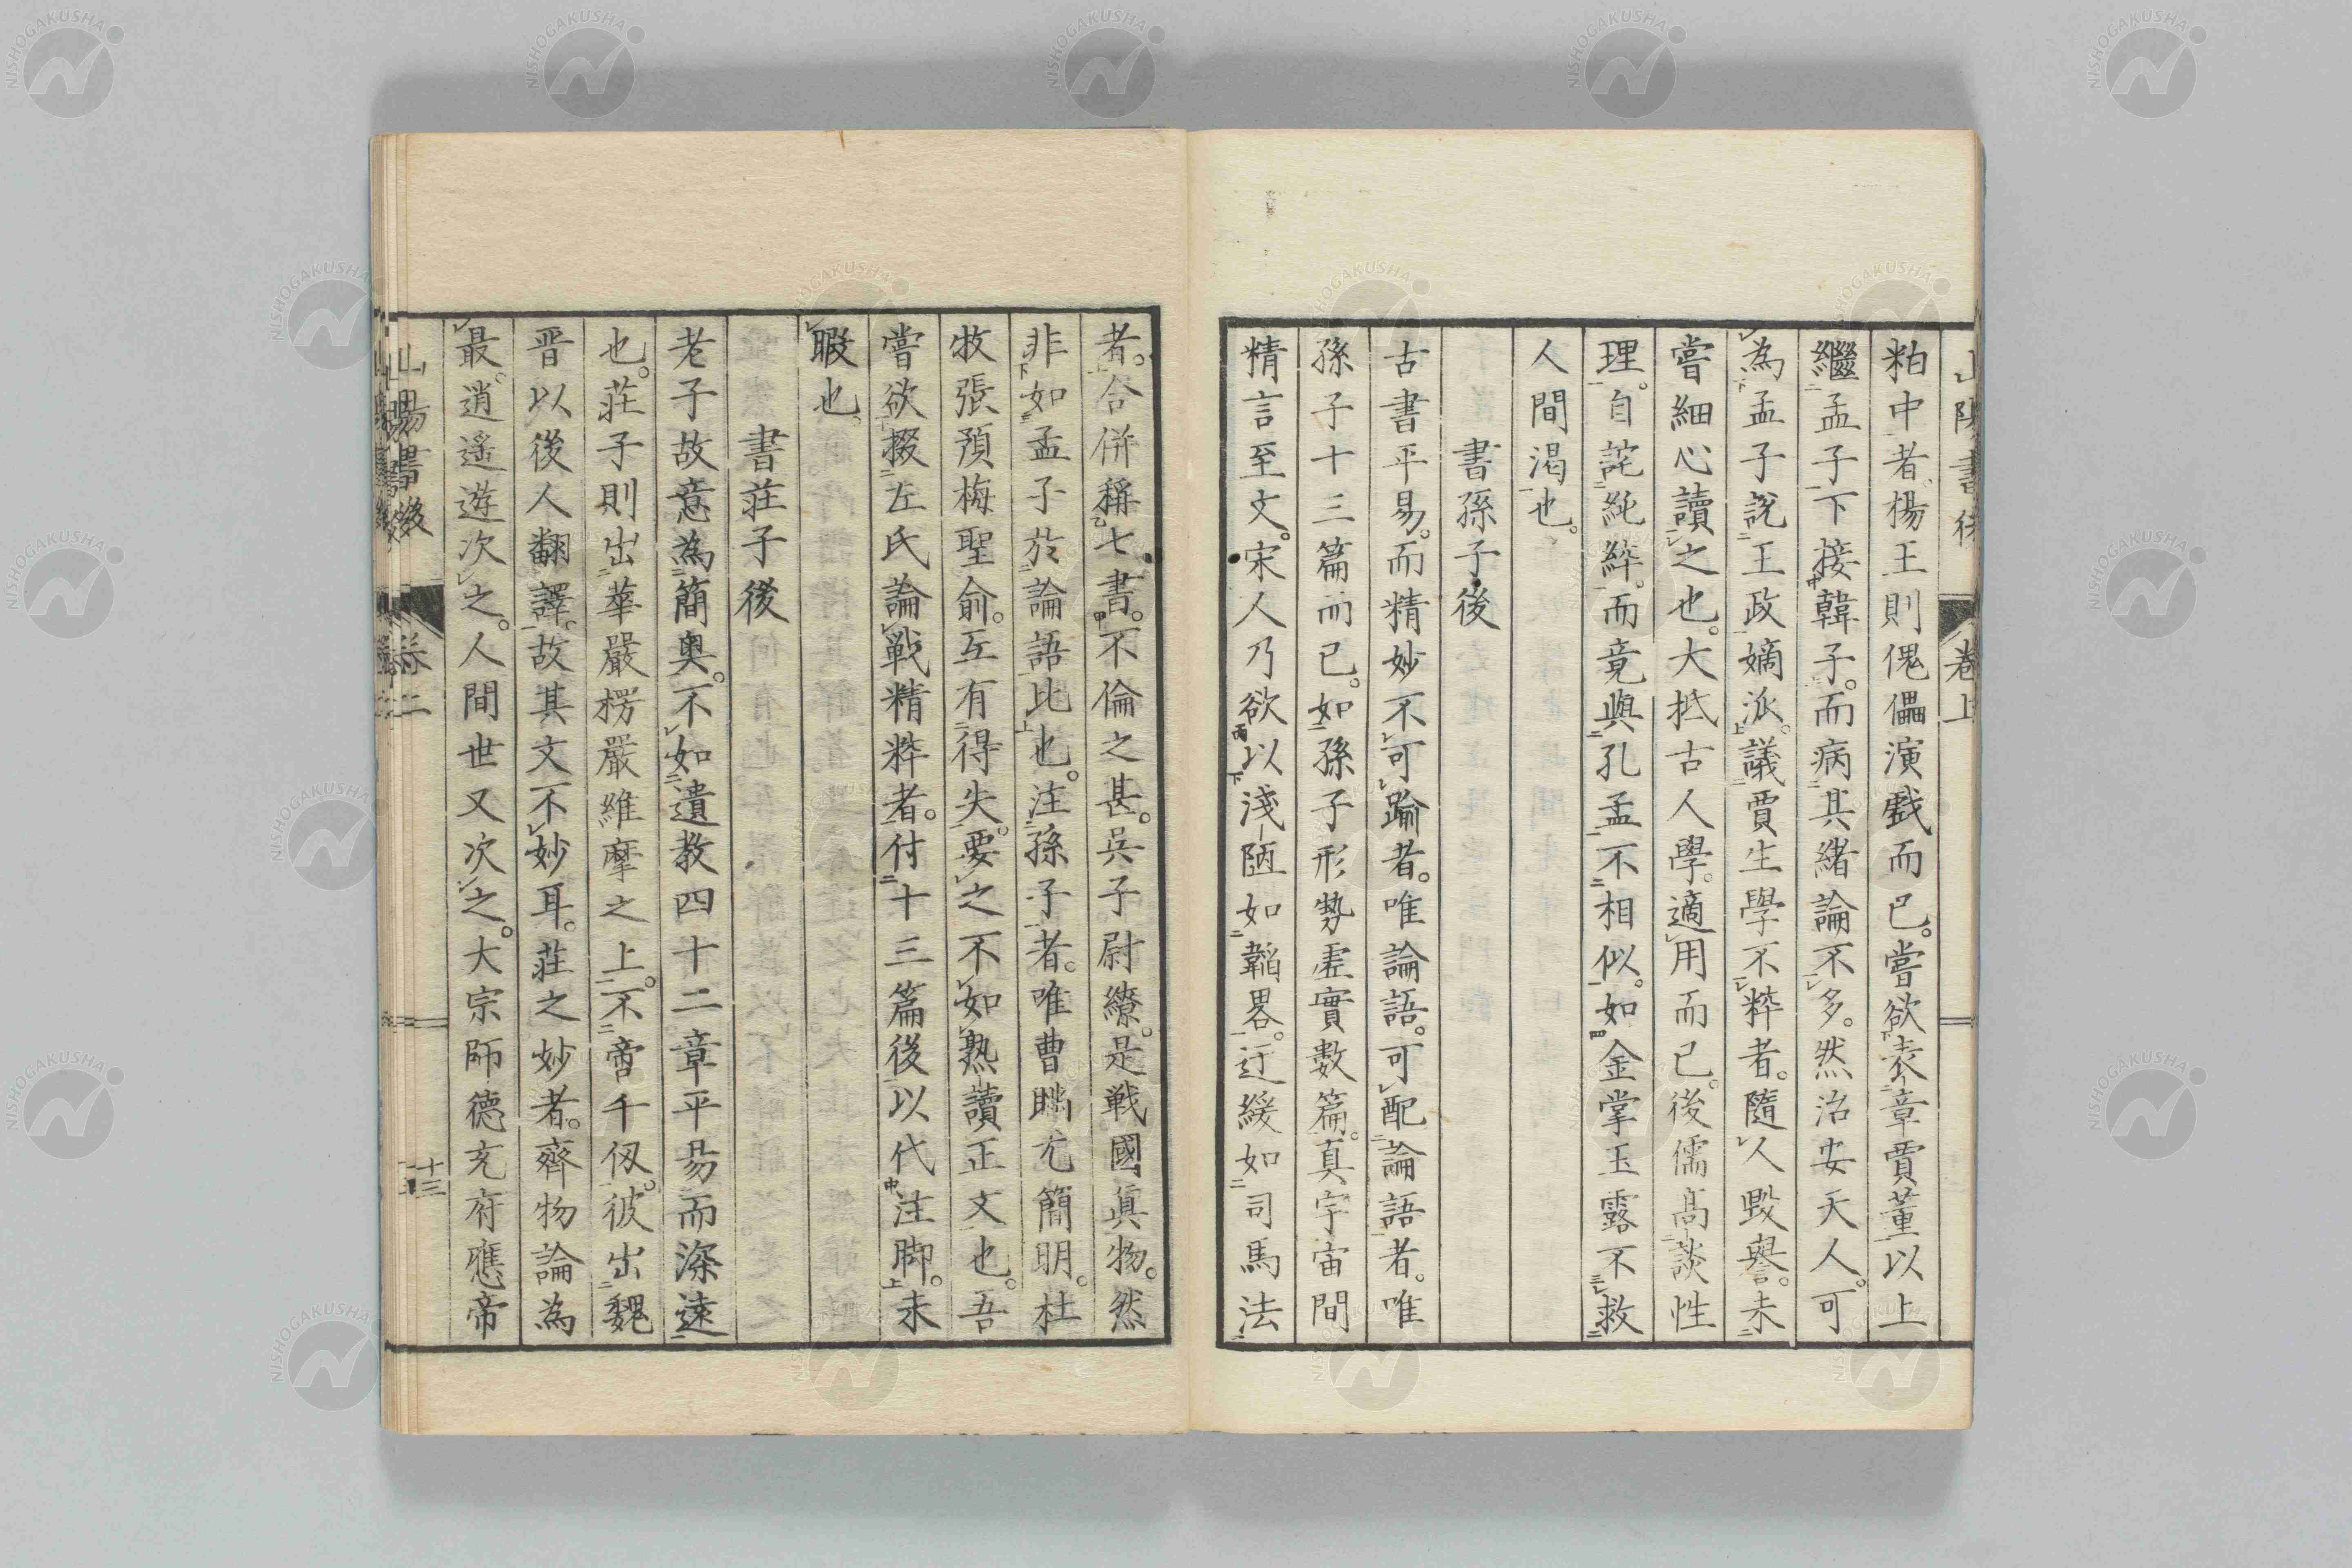 粕中者。楊王則傀儡演戯而已。嘗欲表章賈董以上
繼孟子下接韓子。而病其緒論不多。然治安天人。可
為孟子説王政嫡派。議賈生學不粹者。隨人毀譽。未
嘗細心讀之也。大抵古人學。適用而已。後儒高談性
理。自詫純粹。而竟與孔孟不相似。如金掌玉露不救
人間渇也。
書孫子後
古書平易。而精妙不可踰者。唯論語。可配論語者。唯
孫子十三篇而已。如孫子形勢虚實數篇。真宇宙間
精言至文。宋人乃欲以淺陋如韜畧。迂緩如司馬法
者。合併稱七書。不倫之甚。呉子尉繚。是戦國眞物。然
非如孟子於論語比也。注孫子者。唯曹瞞尤簡明。杜
牧張預梅聖俞。互有得失。要之不如熟讀正文也。吾
嘗欲掇左氏論戦精粹者。付十三篇後以代注脚。未
暇也
書莊子後
老子故意為簡奥。不如遺教四十二章平易而深遠
也。莊子則出華嚴楞嚴維摩之上。不啻千仭。彼出魏
晋以後人翻譯。故其文不妙耳。莊之妙者。齊物論為
最。逍遙遊次之。人間世又次之。大宗師德充府應帝
山陽書後
卷上
十三
NISHOGAKUSHA